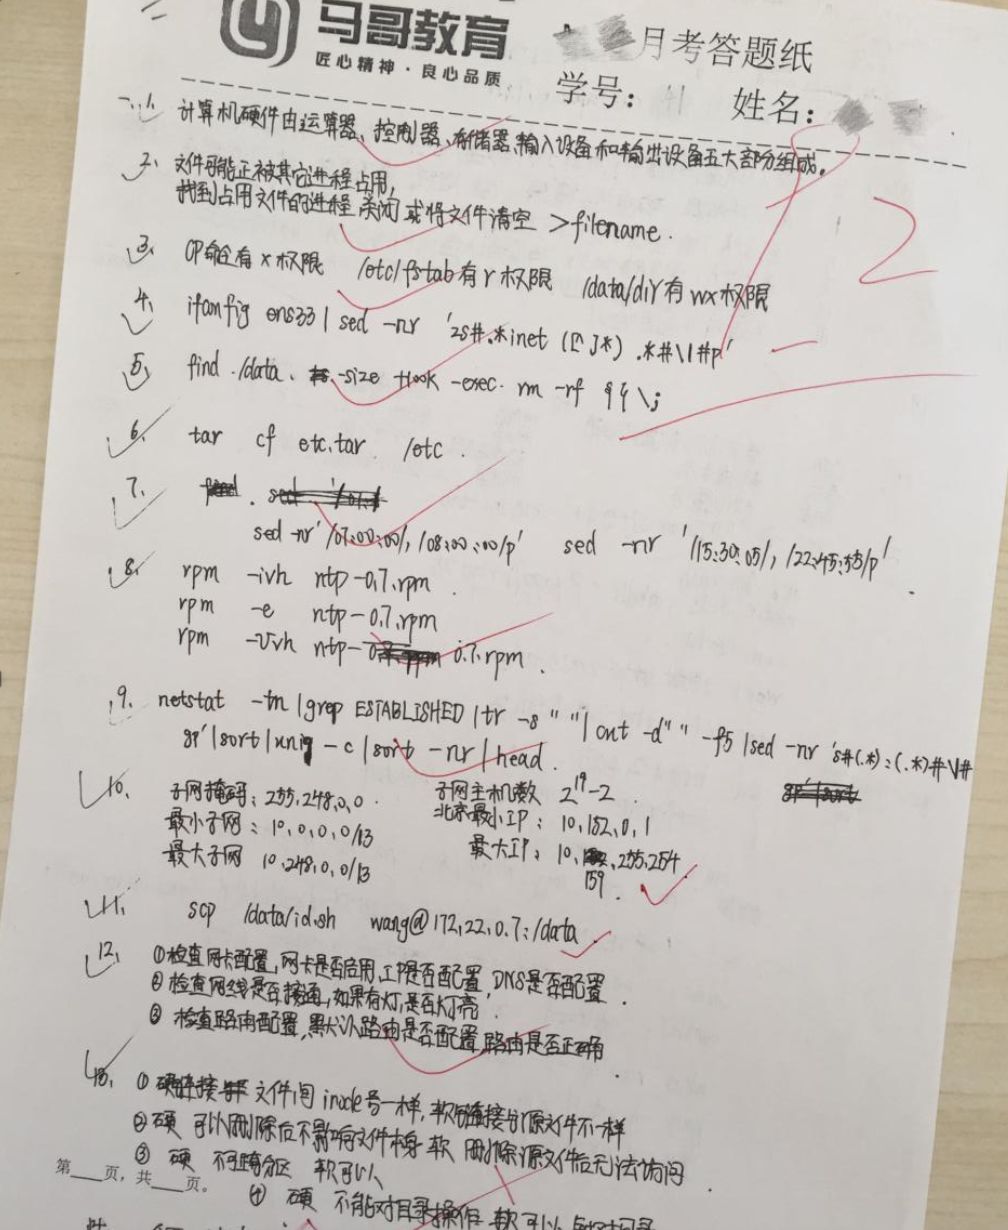 马哥教育
匠心精神·良心品质
月考答题纸
学号: 姓名:
一、1、计算机硬件由运算器、控制器、存储器、输入设备和输出设备五大部分组成。
2、文件可能正被其它进程占用,
找到占用文件的进程 关闭 或将文件清空 >filename.
3、CP命令有x权限 /etc/fstab有r权限 /data/dir有wx权限
4、ifonfig ens33 | sed -nr '2s#.*inet ([^ ]*) .*#\1#p'
5、find ./data. -size +100k -exec rm -rf {} \;
6. tar cf etc.tar /etc.
7、
sed -nr '/07:00:00/, /08:00:00/p' sed -nr '/15:30:05/, /22:45:55/p'
8、rpm -ivh ntp-0.7.rpm.
rpm -e ntp-0.7.rpm
rpm -Uvh ntp- 0.7.rpm.
9. netstat -tn |grep ESTABLISHED |tr -s " " | cut -d" " -f5 |sed -nr 's#(.*):(.*)#\1#
gp'|sort|uniq -c |sort -nr | head.
10、子网掩码:255.248.0.0. 子网主机数 2^19-2
最小子网:10.0.0.0/13 北京最小IP:10.152.0.1
最大子网 10.248.0.0/13 最大IP:10.159.255.254
11. scp /data/id.sh wang@172.22.0.7:/data.
12、①检查网卡配置,网卡是否启用,IP是否配置,DNS是否配置.
②检查网线是否接通,如果有灯,是否灯亮.
③检查路由配置,默认路由是否配置,路由是否正确.
13、①硬链接 文件间inode号一样,软链接与源文件不一样
②硬 可以删除后不影响文件本身 软 删除源文件后无法访问.
③ 硬 不可跨分区 软可以
第 页,共 页。
④ 硬 不能对目录操作 软可以
2